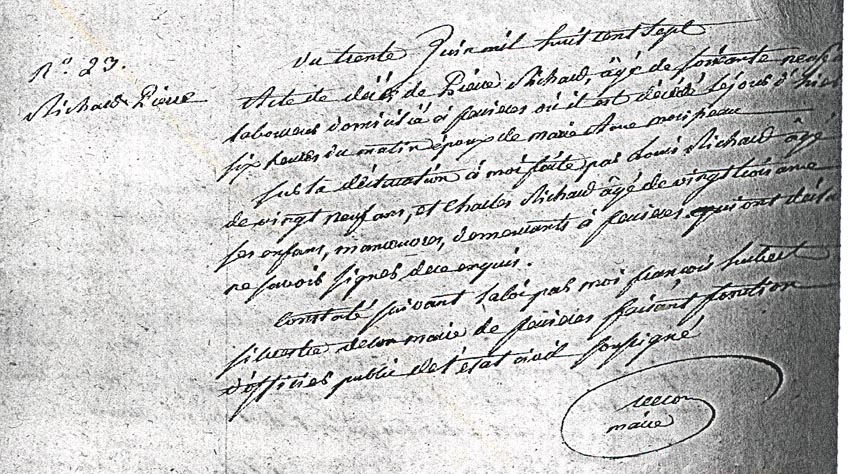 N.º 23.
Richard Pierre
Du trente Juin mil huit cent sept
Acte de décès de Pierre Richard, âgé de soixante neuf
laboureur domicilié à où il est décédé le jour d'hier
six heures du matin époux de marie Anne
sur la déclaration à moi faite par Louis Richard âgé
de vingt neuf ans, et Charles Richard âgé de vingt trois ans
ses enfans, manoeuvres, demeurants à qui ont déclaré
ne savoir signer de ce enquis.
Constaté suivant la loi par moi françois hubert
silvestre maire de faisant fonction
d'officier public de l'état civil soussigné
maire